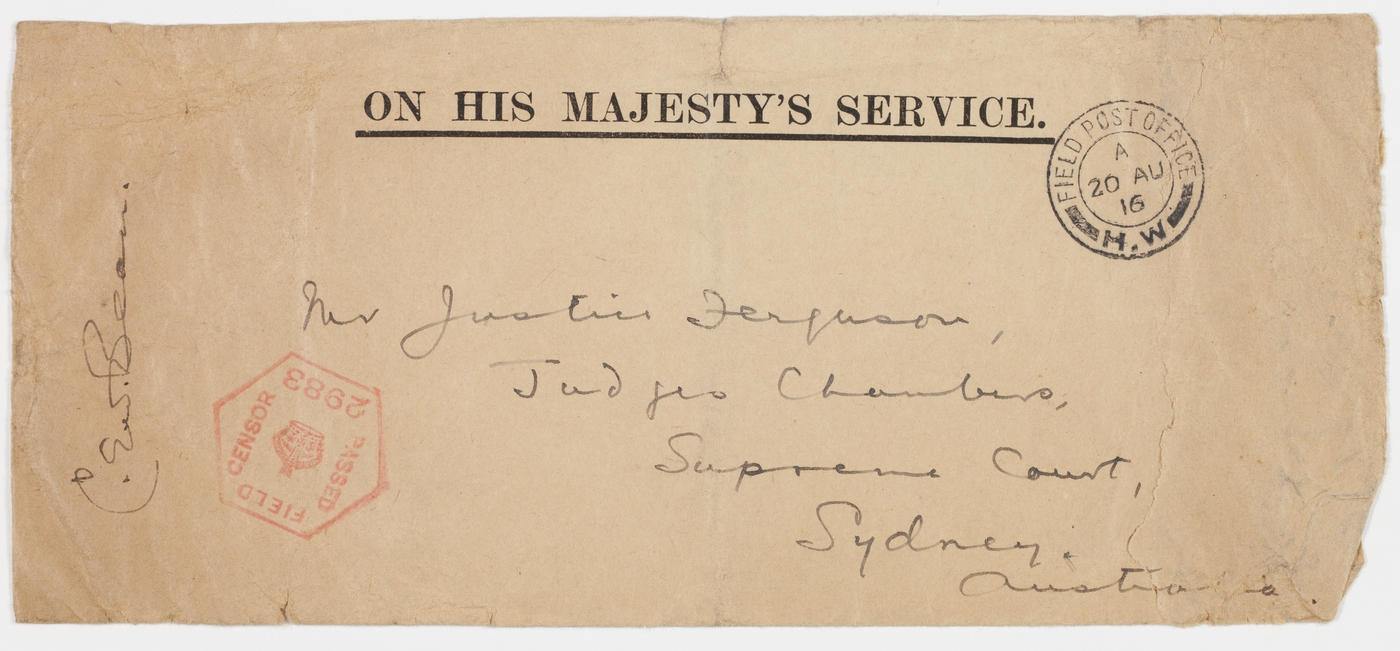 ON HIS MAJESTY'S SERVICE.
FIELD POST OFFICE
A
20 AU
16
H.W
Mr Justice Ferguson,
Judges Chambers,
Supreme Court,
Sydney.
Australia.
C.E.W. Bean.
PASSED FIELD CENSOR
2983